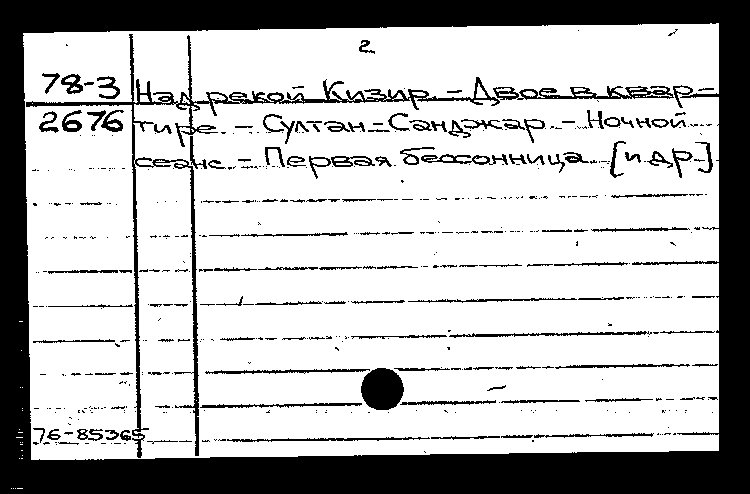 2
78-3 Над рекой Кизир. - Двое в квар-
2676 тире. - Султан-Санджар. - Ночной
сеанс. - Первая бессонница. [и др.]
76-85365